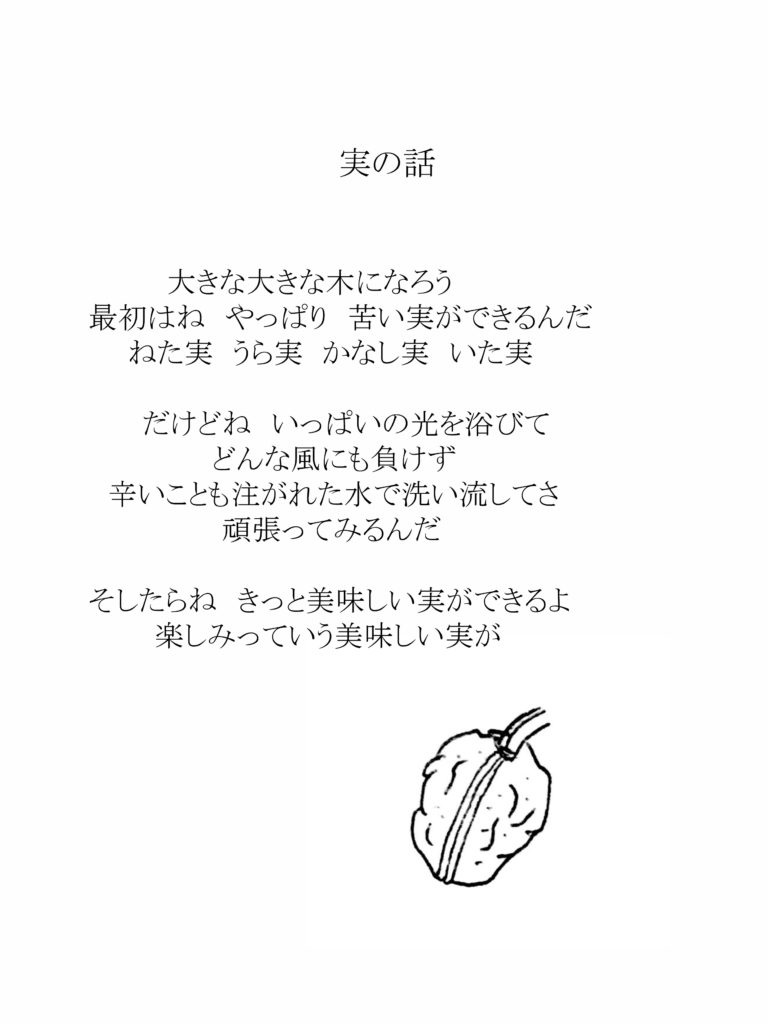 実の話
大きな大きな木になろう
最初はね　やっぱり　苦い実ができるんだ
ねた実　うら実　かなし実　いた実
だけどね　いっぱいの光を浴びて
どんな風にも負けず
辛いことも注がれた水で洗い流してさ
頑張ってみるんだ
そしたらね　きっと美味しい実ができるよ
楽しみっていう美味しい実が